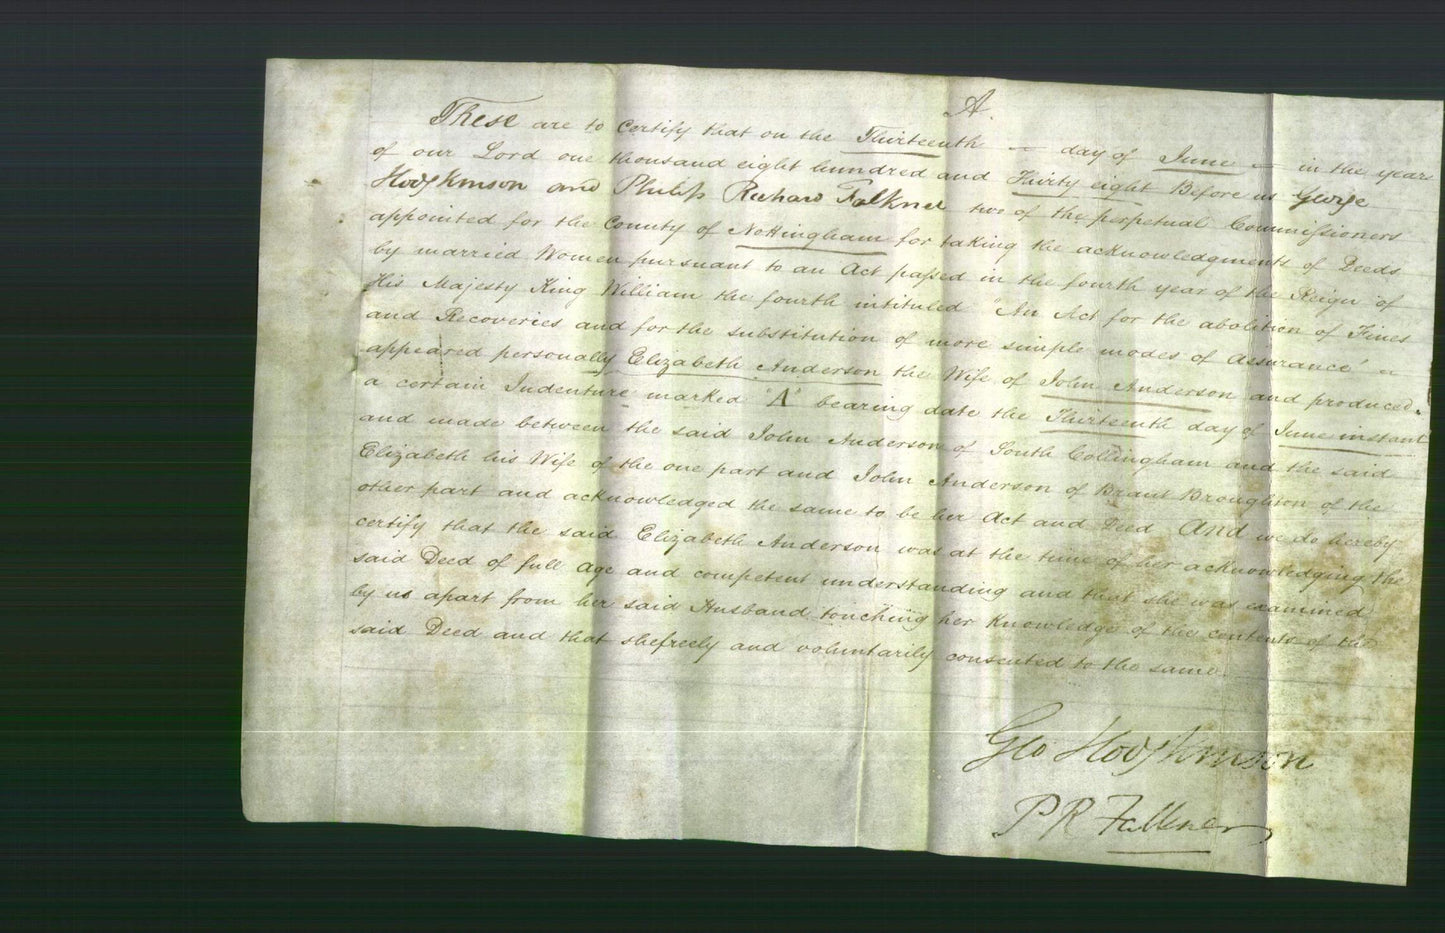 A.
These are to Certify that on the Thirteenth — day of June — in the year
of our Lord one thousand eight hundred and Thirty eight Before us George
Hodgkinson and Philip Richard Falkner two of the perpetual Commissioners
appointed for the County of Nottingham for taking the acknowledgments of Deeds
by married Women pursuant to an Act passed in the fourth year of the Reign of
His Majesty King William the fourth intituled "An Act for the abolition of Fines
and Recoveries and for the substitution of more simple modes of Assurance —
appeared personally Elizabeth Anderson the Wife of John Anderson and produced
a certain Indenture marked "A" bearing date the Thirteenth day of June instant
and made between the said John Anderson of South Collingham and the said
Elizabeth his Wife of the one part and John Anderson of Brant Broughton of the
other part and acknowledged the same to be her Act and Deed And we do hereby
certify that the said Elizabeth Anderson was at the time of her acknowledging the
said Deed of full age and competent understanding and that she was examined
by us apart from her said Husband touching her knowledge of the contents of the
said Deed and that she freely and voluntarily consented to the same
Geo Hodgkinson
P R Falkner